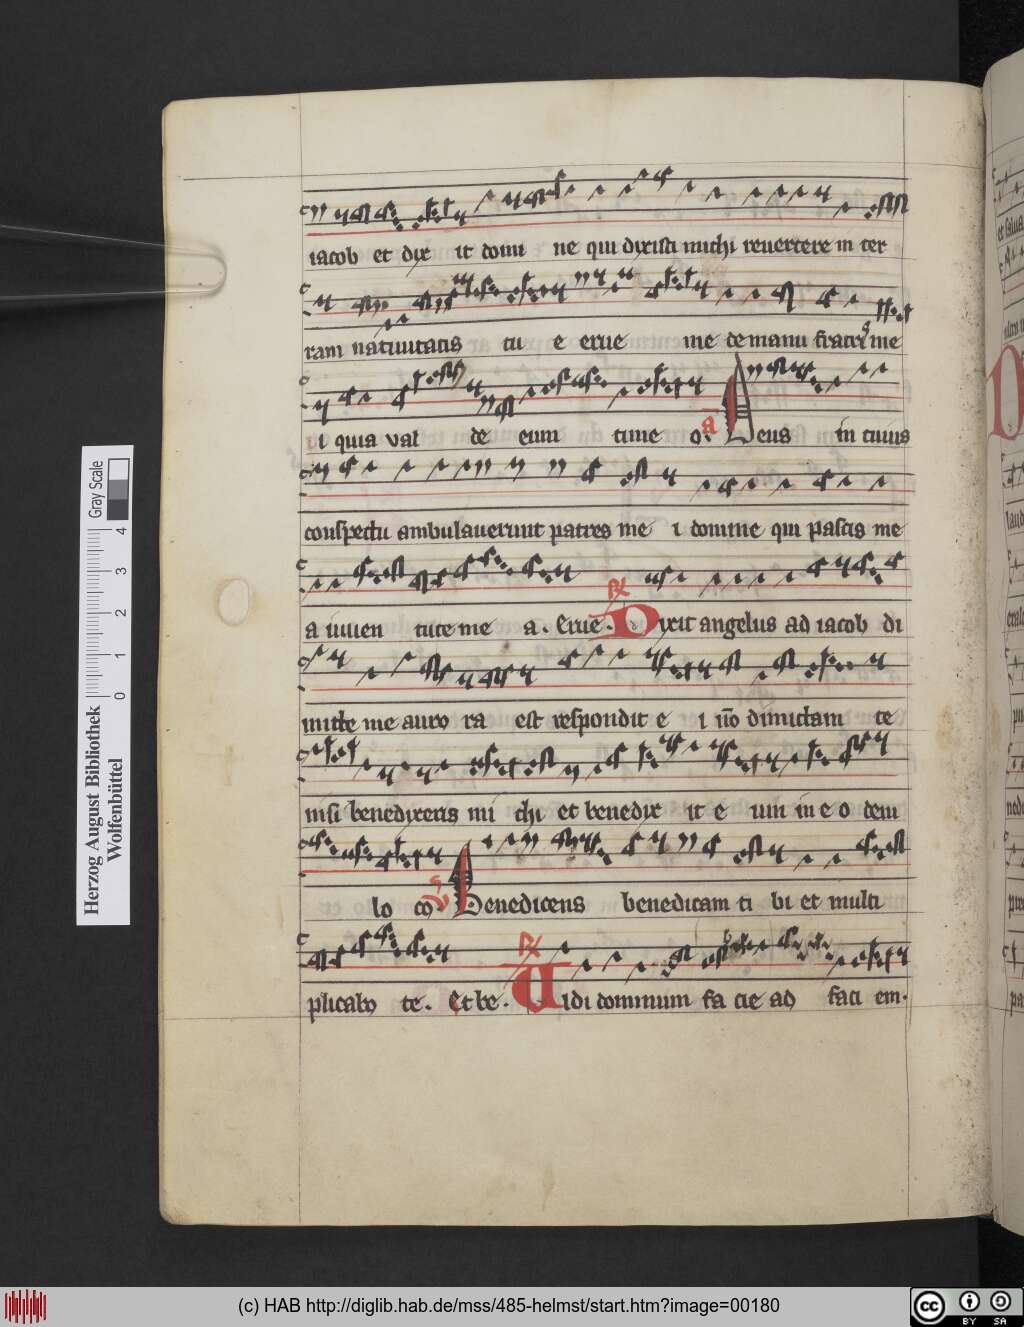 iacob et dix it domi ne qui dixisti michi reuertere in ter
ram natiuitatis tu e erue me de manu fratr me
i quia val de eum time o. Deus in cuius
conspectu ambulauerunt patres me i domine qui pascis me
a iuuen tute me a. Erue. Dixit angelus ad iacob di
mitte me auro ra est respondit e i no dimittam te
nisi benedixeris mi chi et benedix it e um in e o dem
lo co. Benedicens benedicam ti bi et multi
plicabo te. Et be. Uidi dominum fa cie ad faci em.
Herzog August Bibliothek
Wolfenbüttel
0 1 2 3 4
Gray Scale
(c) HAB http://diglib.hab.de/mss/485-helmst/start.htm?image=00180
cc BY SA